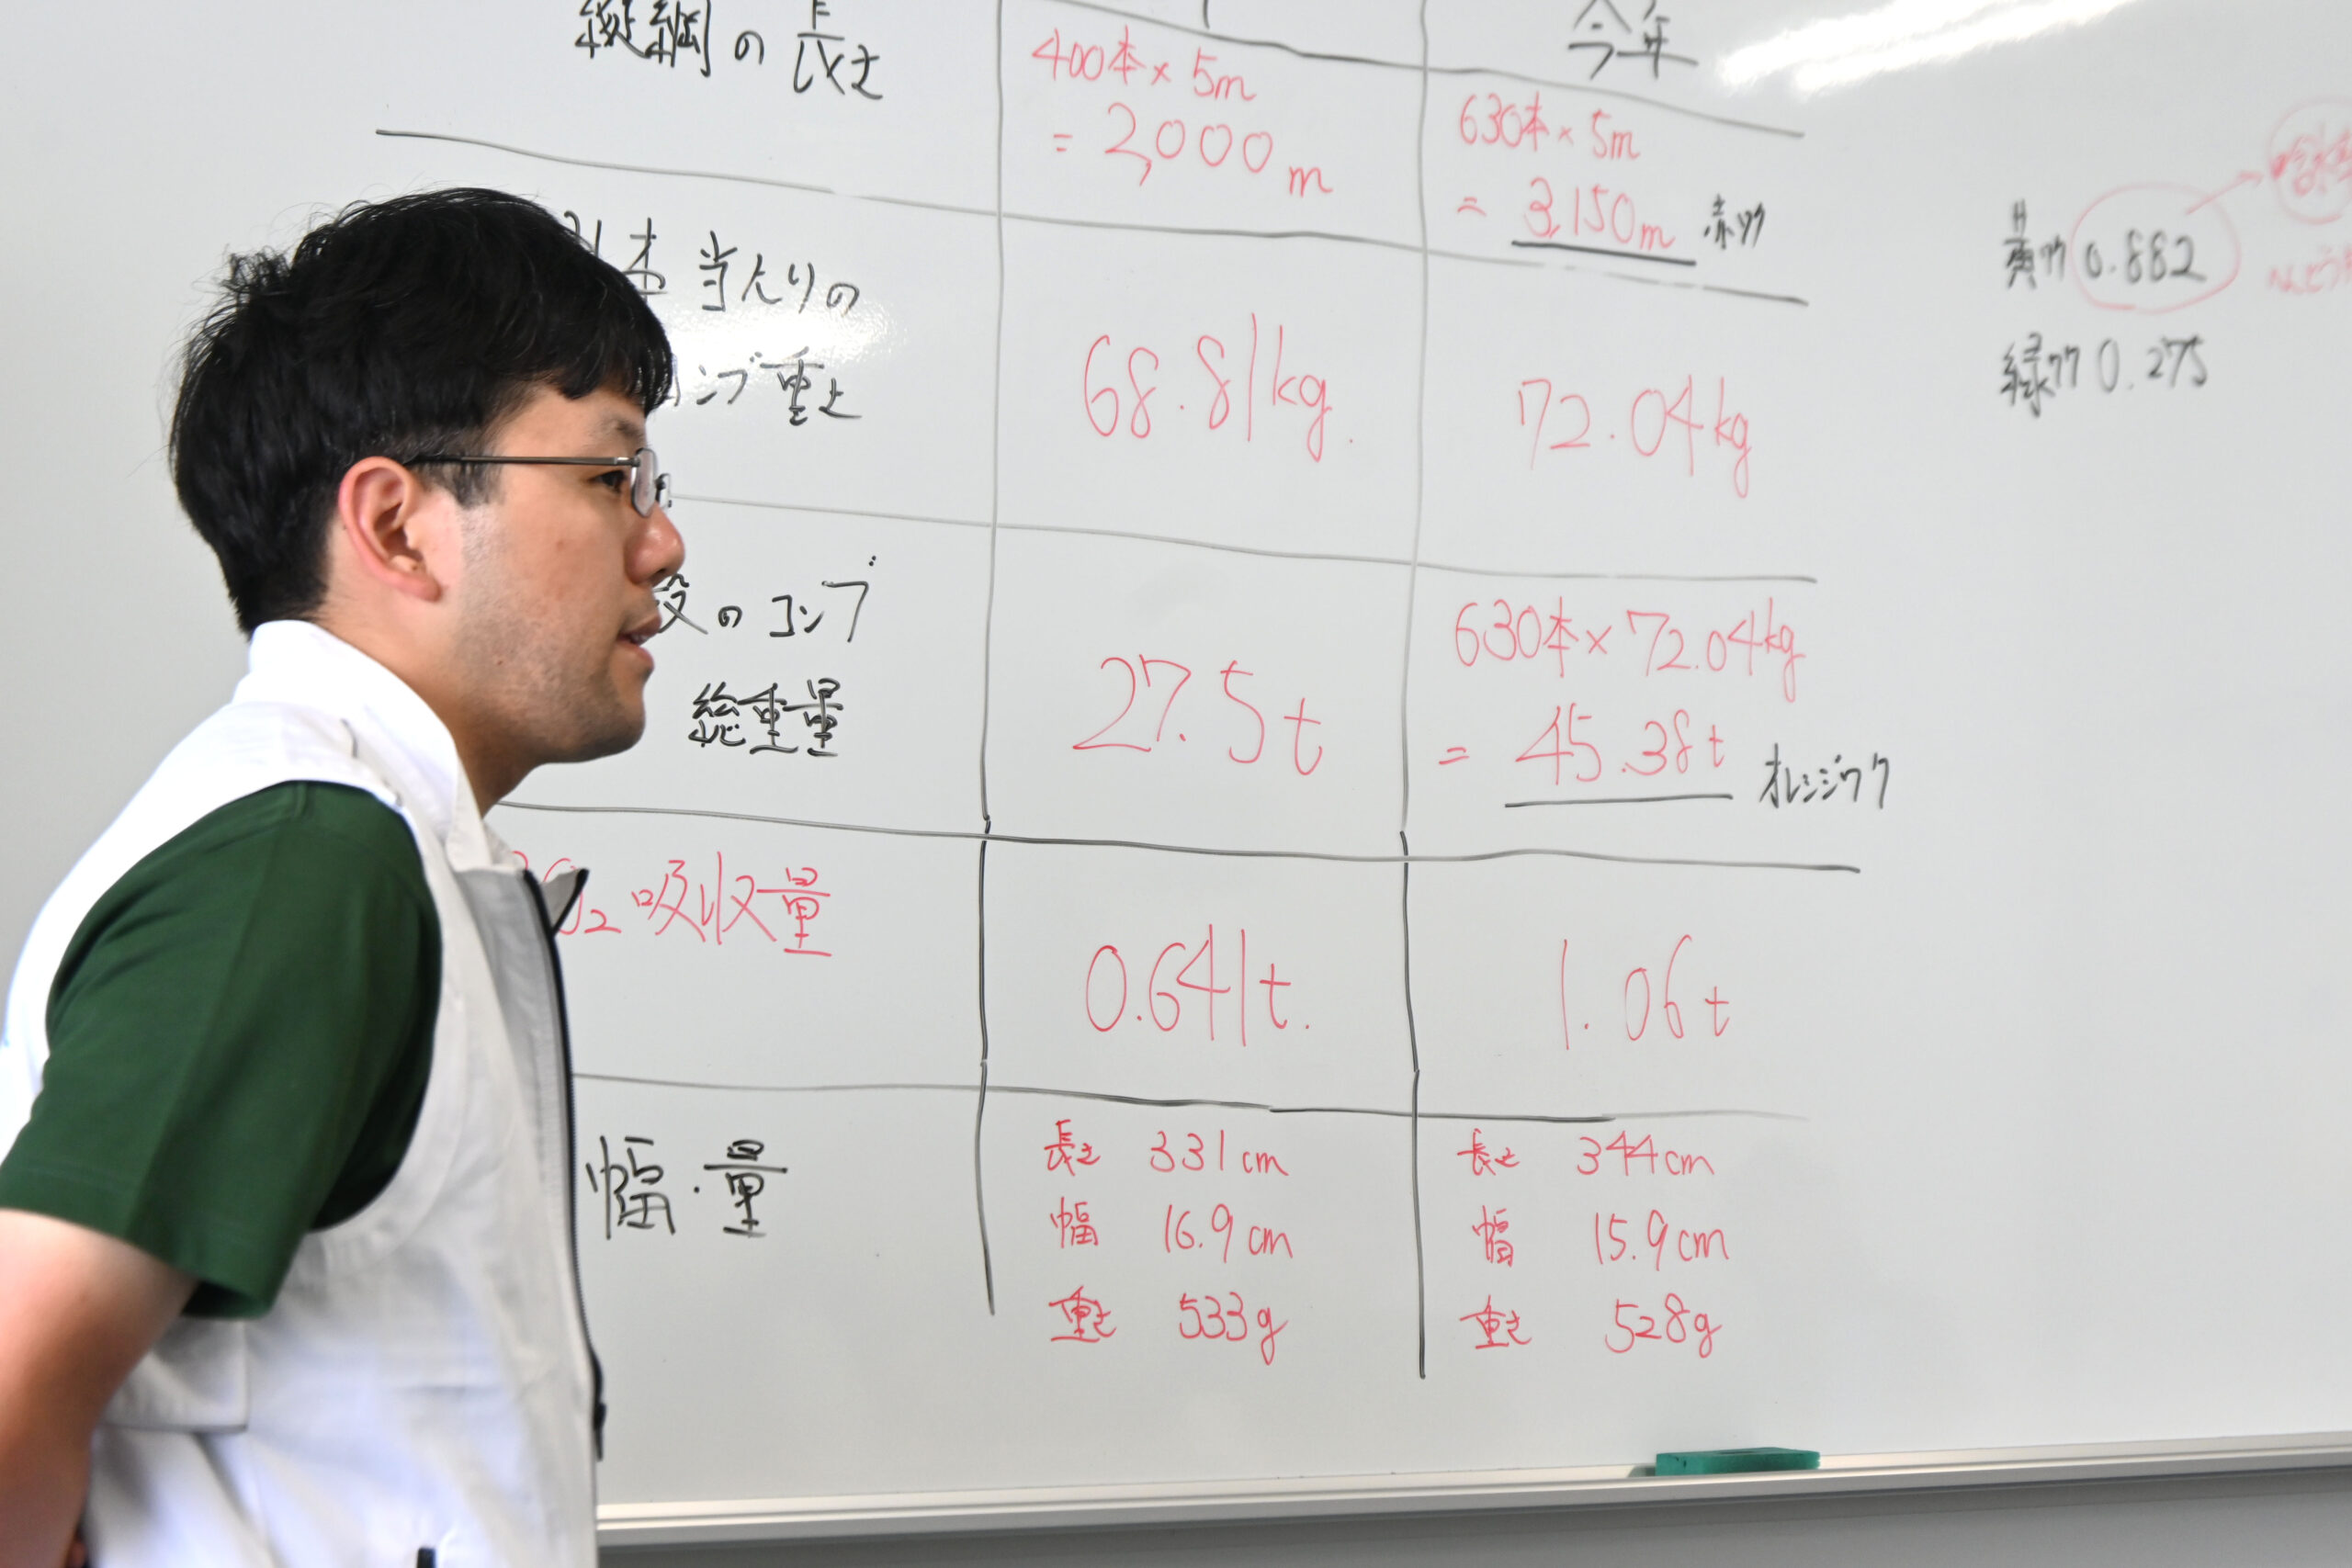 縦綱の長さ
今年
400本×5m
=2,000m
630本×5m
=3,150m 赤ワク
本当たりの
コンブ重さ
68.81kg.
72.04kg
黄ワク 0.882
緑ワク 0.275
のコンブ
総重量
27.5t
630本×72.04kg
=45.38t オレンジワク
CO2吸収量
0.641t.
1.06t
幅・量
長さ 331cm
幅 16.9cm
重さ 533g
長さ 344cm
幅 15.9cm
重さ 528g